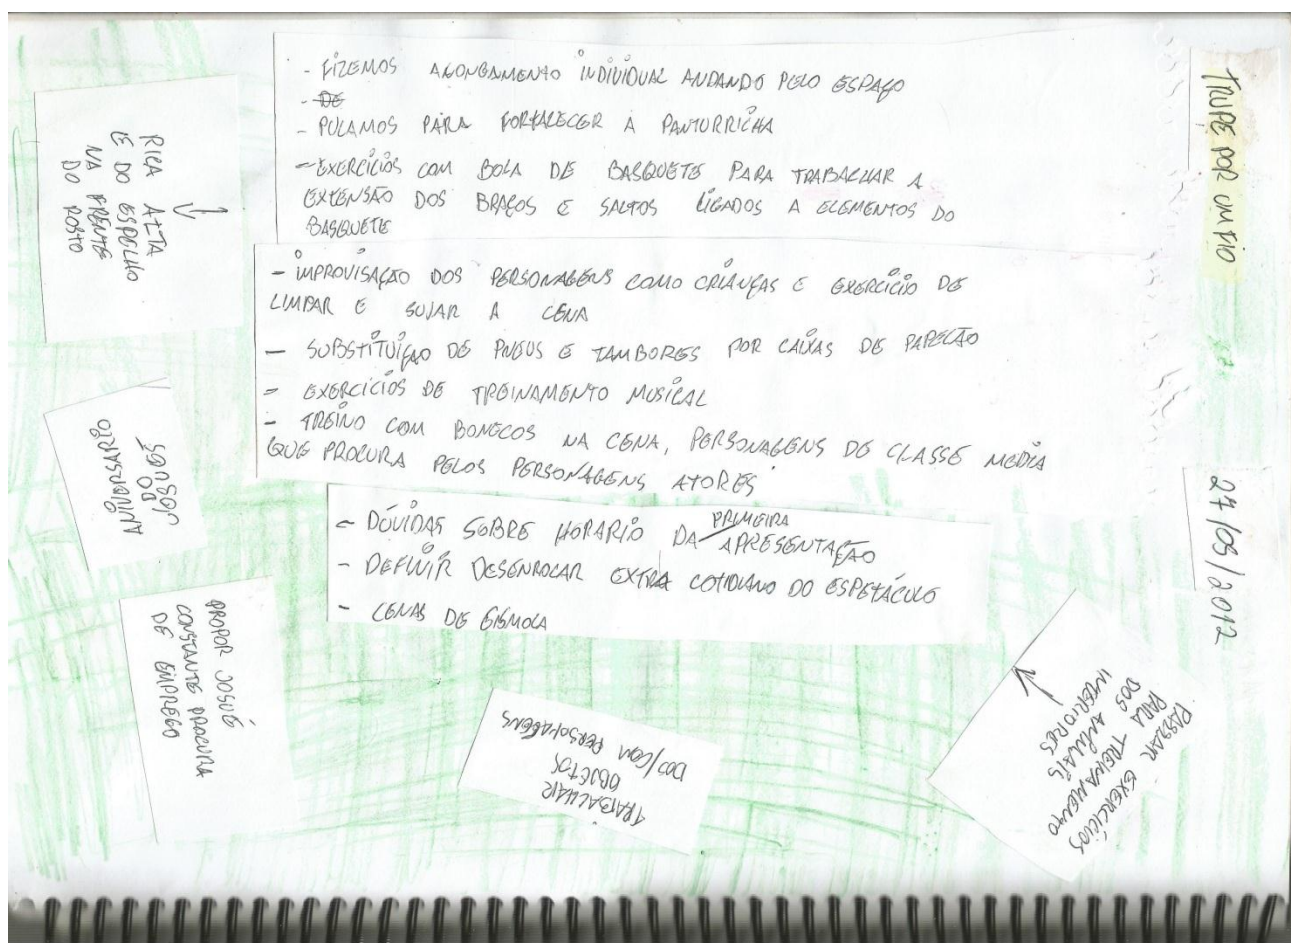 - FIZEMOS ALONGAMENTO INDIVIDUAL ANDANDO PELO ESPAÇO
- DE
- PULAMOS PARA FORTALECER A PANTURRILHA
- EXERCÍCIOS COM BOLA DE BASQUETE PARA TRABALHAR A
EXTENSÃO DOS BRAÇOS E SALTOS LIGADOS A ELEMENTOS DO
BASQUETE
- IMPROVISAÇÃO DOS PERSONAGENS COMO CRIANÇAS E EXERCÍCIO DE
LIMPAR E SUJAR A CENA
- SUBSTITUIÇÃO DE PNEUS E TAMBORES POR CAIXAS DE PAPELÃO
- EXERCÍCIOS DE TREINAMENTO MUSICAL
- TREINO COM BONECOS NA CENA, PERSONAGENS DE CLASSE MEDIA
QUE PROCURA PELOS PERSONAGENS ATORES
- DÚVIDAS SOBRE HORARIO DA PRIMEIRA APRESENTAÇÃO
- DEFINIR DESENROLAR EXTRA COTIDIANO DO ESPETÁCULO
- CENAS DE ESMOLA
TRUPE POR UM FIO
27/09/2012
RICA ALTA
E DO ESPELHO
NA FRENTE
DO ROSTO
ANIVERSARIO
DO
JOSUÉ
PROPOR JOSUÉ
CONSTANTE PROCURA
DE EMPREGO
TRABALHAR
OBJETOS
DOS/COM PERSONAGENS
PASSAR EXERCÍCIOS
PARA TREINAMENTO
DOS
INFERIORES